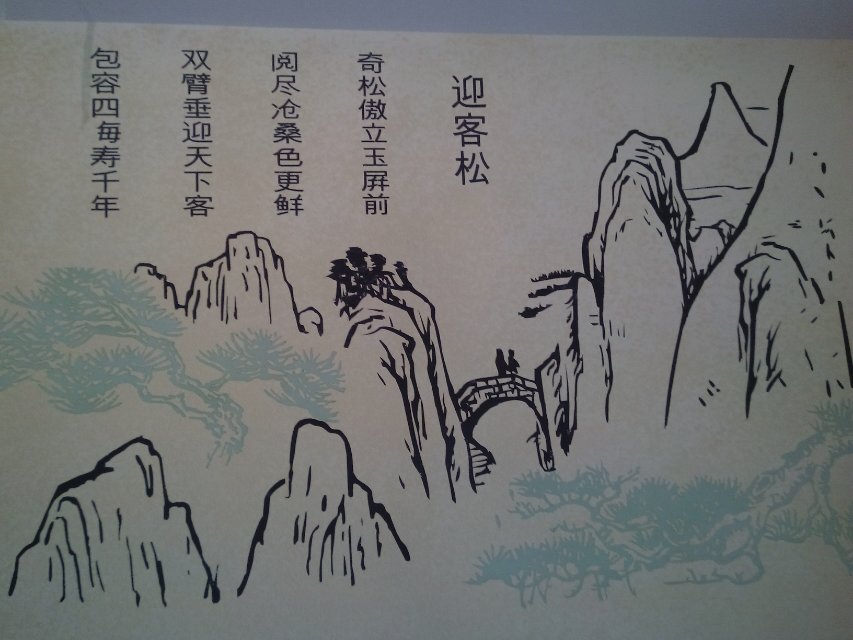 迎客松
奇松傲立玉屏前
阅尽沧桑色更鲜
双臂垂迎天下客
包容四每寿千年